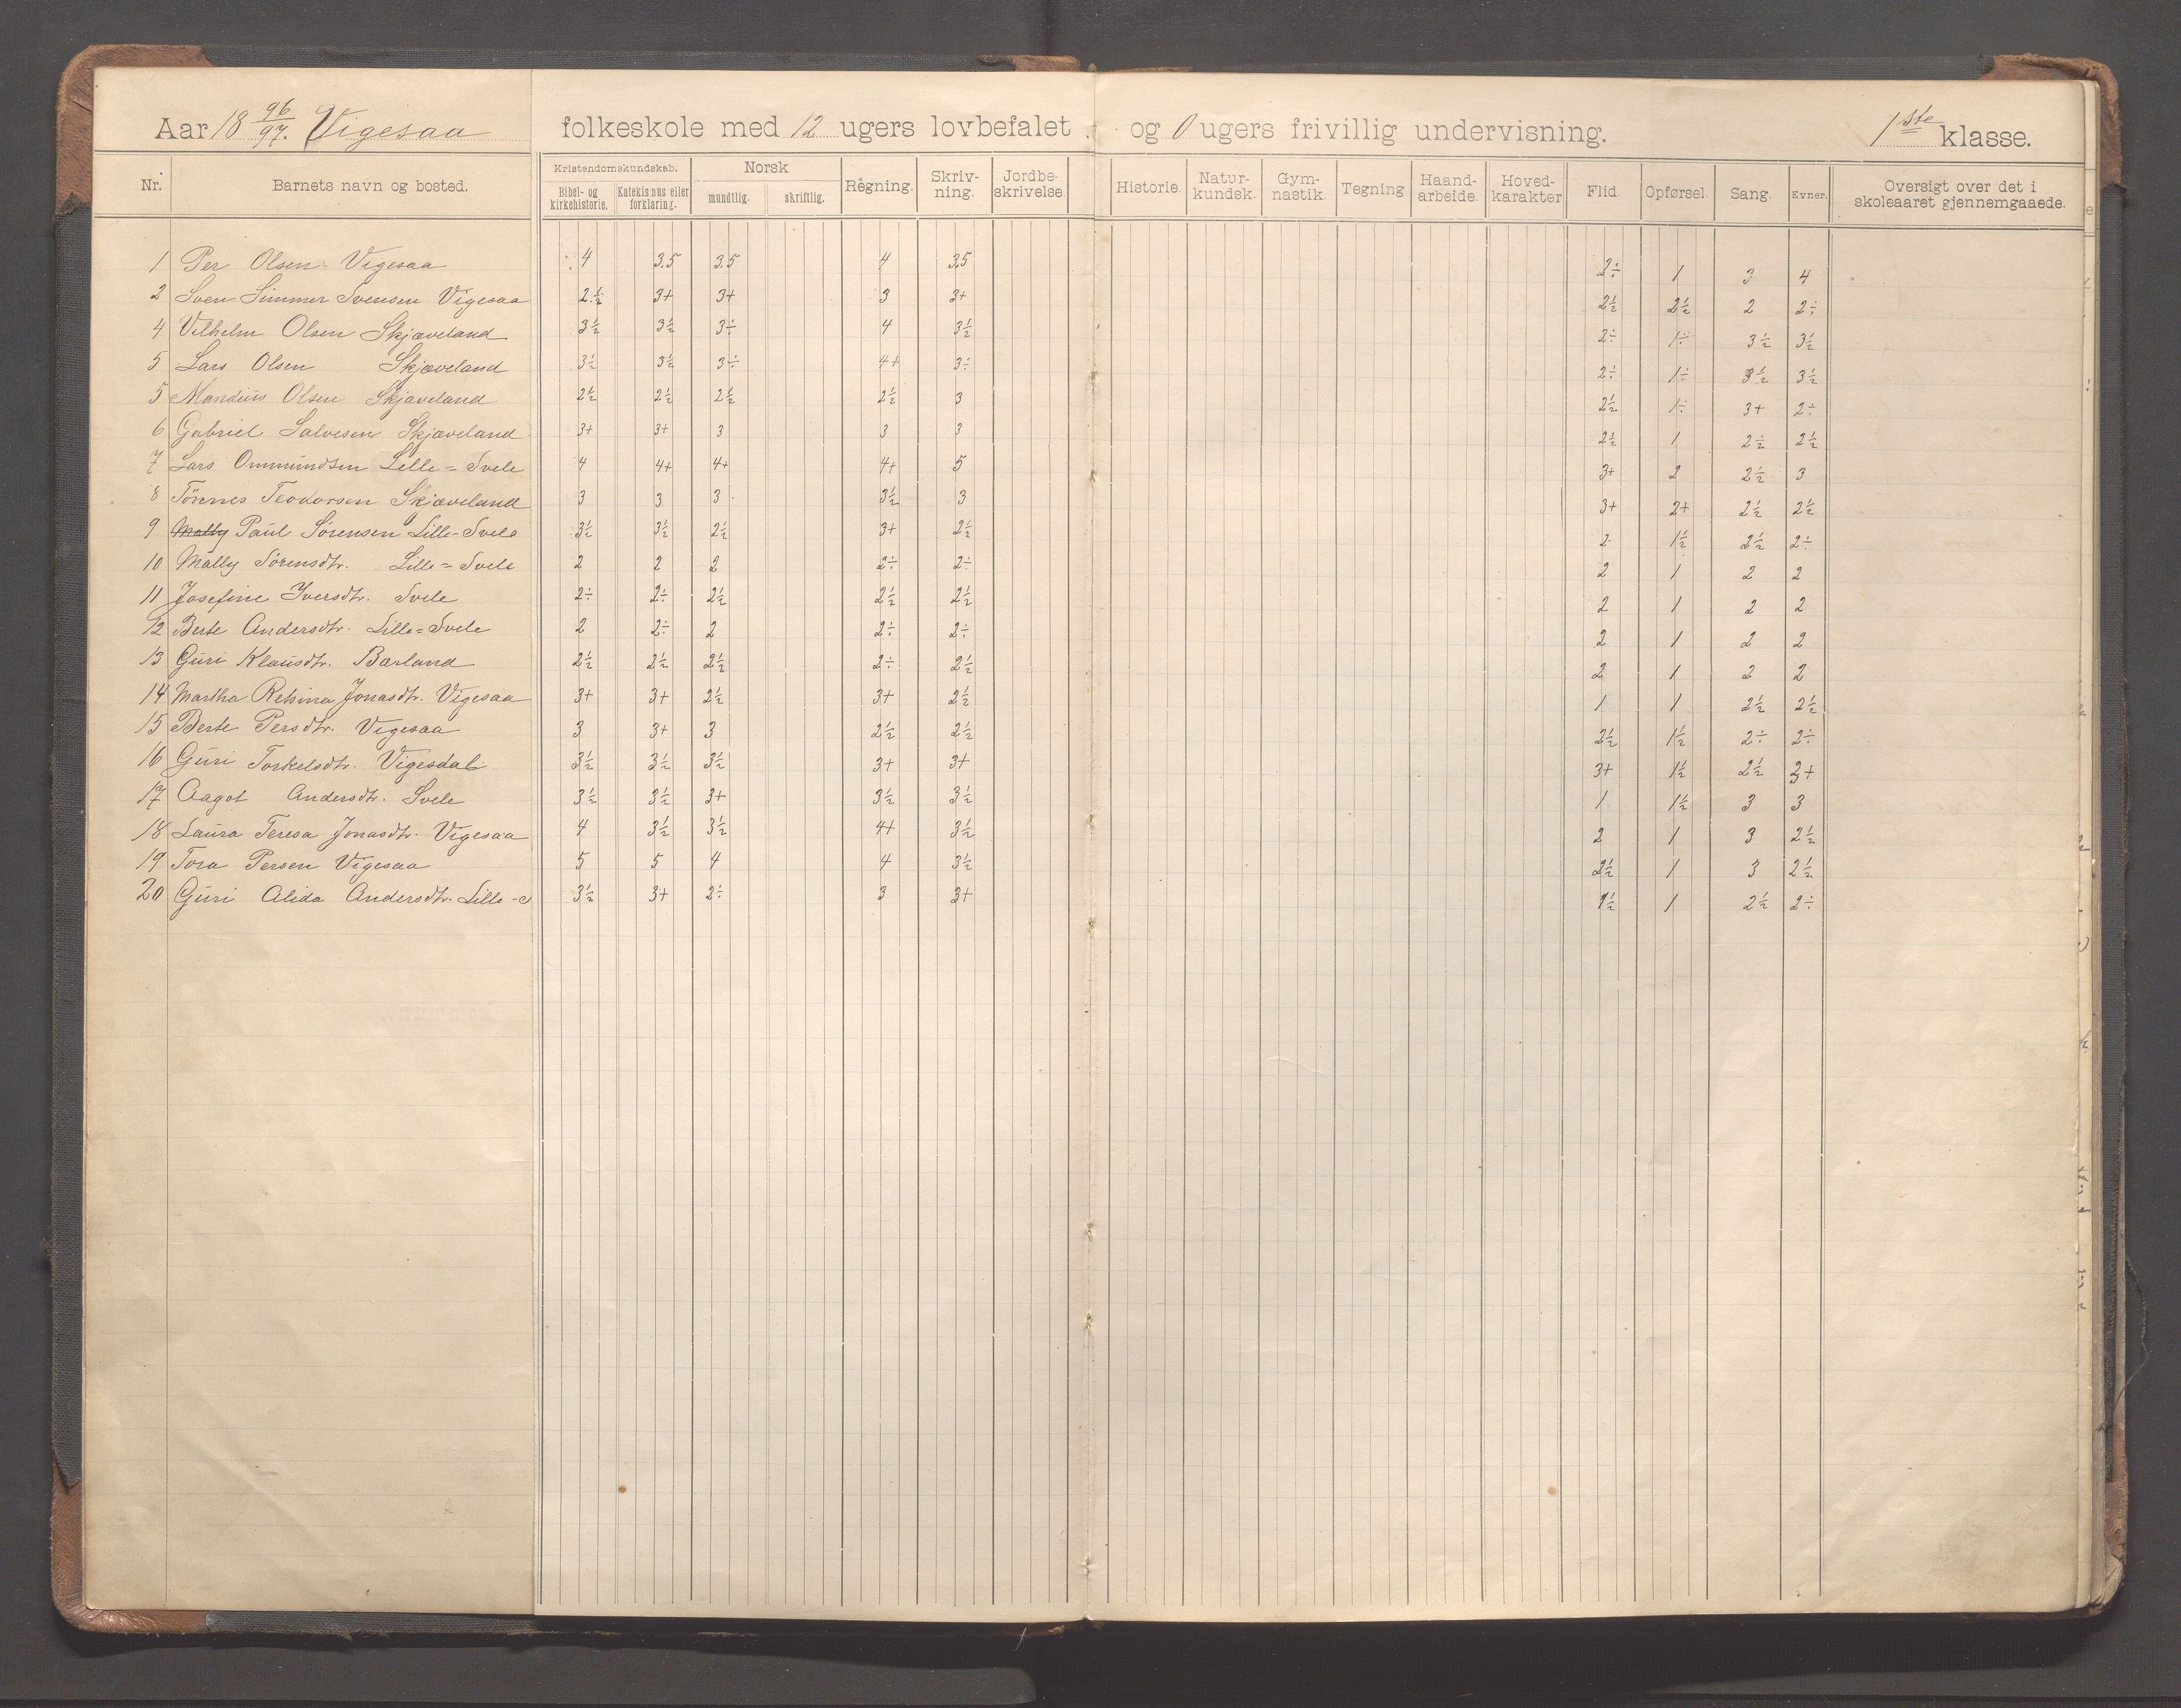 Aar 18 96/97. Vigesaa folkeskole med 12 ugers lovbefalet og 0 ugers frivillig undervisning. 1ste klasse.
Nr. Barnets navn og bosted. Kristendomskundskab. Bibel- og kirkehistorie. Katekismus eller forklaring. Norsk mundtlig. skriftlig. Regning. Skriv-ning. Jordbe-skrivelse. Historie. Natur-kundsk. Gym-nastik. Tegning Haand-arbeide. Hoved-karakter Flid. Opførsel. Sang. Evner. Oversigt over det i skoleaaret gjennemgaaede.
1 Per Olsen Vigesaa 4 3.5 3.5 4 3.5 2÷ 1 3 4
2 Sven Simmer Svensen Vigesaa 2½ 3+ 3+ 3 3+ 2½ 2½ 2 2÷
4 Vilhelm Olsen Skjæveland 3½ 3½ 3÷ 4 3½ 2÷ 1÷ 3½ 3½
5 Lars Olsen Skjæveland 3½ 3½ 3÷ 4+ 3÷ 2÷ 1÷ 3½ 3½
5 Mandius Olsen Skjæveland 2½ 2½ 2½ 2½ 3 2½ 1÷ 3+ 2÷
6 Gabriel Salvesen Skjæveland 3+ 3+ 3 3 3 2½ 1 2÷ 2½
7 Lars Ommundsen Lille=Svele 4 4+ 4+ 4+ 5 3+ 2 2½ 3
8 Tönnes Teodorsen Skjæveland 3 3 3 3½ 3 3+ 2+ 2½ 2½
9 Mally Paul Sörensen Lille-Svele 3½ 3½ 2½ 3+ 2½ 2 1½ 2½ 2÷
10 Mally Sörensdtr. Lille=Svele 2 2 2 2÷ 2÷ 2 1 2 2
11 Josefine Iversdtr. Svele 2÷ 2÷ 2½ 2½ 2½ 2 1 2 2
12 Berte Andersdtr. Lille=Svele 2 2÷ 2 2÷ 2÷ 2 1 2 2
13 Guri Klausdtr. Barland 2½ 2½ 2½ 2÷ 2½ 2 1 2 2
14 Martha Rekina Jonasdtr. Vigesaa 3+ 3+ 2½ 3+ 2½ 1 1 2½ 2½
15 Berte Persdtr. Vigesaa 3 3+ 3 2½ 2½ 2½ 1½ 2÷ 2÷
16 Guri Torkelsdtr. Vigesdal 3½ 3½ 3½ 3+ 3+ 3+ 1½ 2½ 3+
17 Aagot Andersdtr. Svele 3½ 3½ 3+ 3½ 3½ 1 1½ 3 3
18 Laura Teresa Jonasdtr. Vigesaa 4 3½ 3½ 4+ 3½ 2 1 3 2½
19 Tora Persen Vigesaa 5 5 4 4 3½ 2½ 1 3 2½
20 Guri Alida Andersdtr. Lille-S 3½ 3+ 2÷ 3 3+ 1½ 1 2½ 2÷